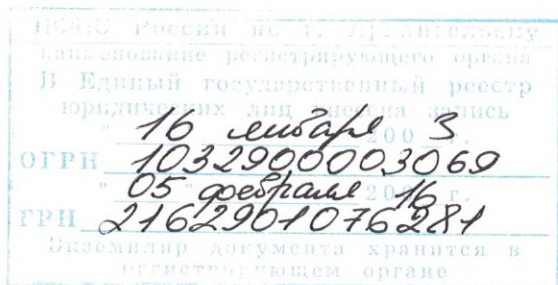 ИФНС России по г. Архангельску
наименование регистрирующего органа
В Единый государственный реестр
юридических лиц внесена запись
" 16 января 200 3 г.
ОГРН 1032900003069
" 05 " февраля 20016 г.
ГРН 2162901076281
Экземпляр документа хранится в
регистрирующем органе